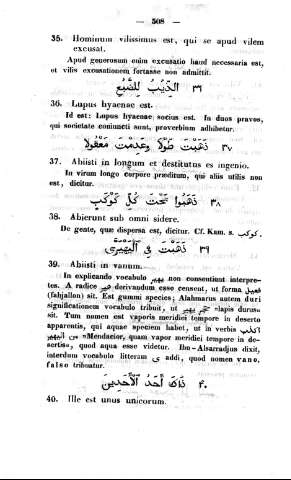 — 508 —
35. Hominum vilissimus est, qui se apud vilem
excusat.
Apud generosum enim excusatio haud necessaria est,
et vilis excusationem fortasse non admittit.
٣٦ الذِّيبُ لِلضَّبُعِ
36. Lupus hyaenae est.
Id est: Lupus hyaenae socius est. In duos pravos,
qui societate coniuncti sunt, proverbium adhibetur.
٣٧ ذَهَبْتَ طُولًا وَعَدِمْتَ مَعْقُولًا
37. Abiisti in longum et destitutus es ingenio.
In virum longo corpore praeditum, qui aliis utilis non
est, dicitur.
٣٨ ذَهَبُوا تَحْتَ كُلِّ كَوْكَبٍ
38. Abierunt sub omni sidere.
De gente, quae dispersa est, dicitur. Cf. Kam. s. كوكب.
٣٩ ذَهَبْتَ فِي الْيَهْيَرَّى
39. Abiisti in vanum.
In explicando vocabulo يهير non consentiunt interpre-
tes. A radice هير derivandum esse censent, ut forma فعيل
(fahjallon) sit. Est gummi species; Alahmarus autem duri
significationem vocabulo tribuit, ut حجر يهير «lapis durus»
sit. Tum nomen est vaporis meridici tempore in deserto
apparentis, qui aquae speciem habet, ut in verbis اكذب
من اليهير «Mendacior, quam vapor meridici tempore in de-
serto», quod aqua esse videtur. Ibn-Alsarradjus dixit,
interdum vocabulo litteram ى addi, quod nomen vano,
falso tribuatur.
٤٠ ذَاكَ أَحَدُ الْأَحَدِينَ
40. Ille est unus unicorum.